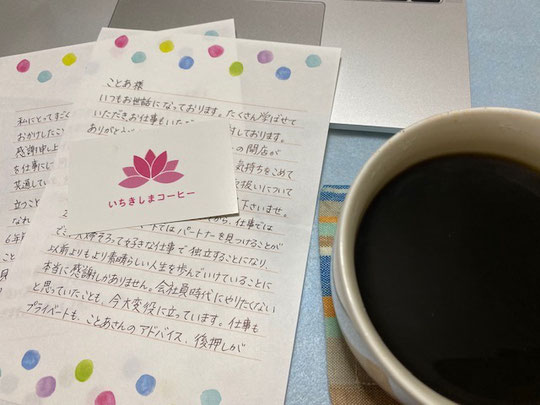 ことあ様
いつもお世話になっております。たくさん学ばせて
いただきお仕事もいただ
ありがとう
しております。
の開店が
気持ちをこめて
扱いについて
下さいませ。
から、仕事では
下ではパートナーを見つけることが
で、夫婦そろって好きな仕事で独立することになり、
以前よりもより素晴らしい人生を歩んでいけていることに
本当に感謝しかありません。会社員時代にやりたくない
と思っていたことも、今大変役に立っています。仕事も
プライベートも、ことあさんのアドバイス、後押しが
いちきしまコーヒー
私にとってすご
おかけしたこと
感謝申し上
を仕事にし
共通してい
立つこと
なれ
6年